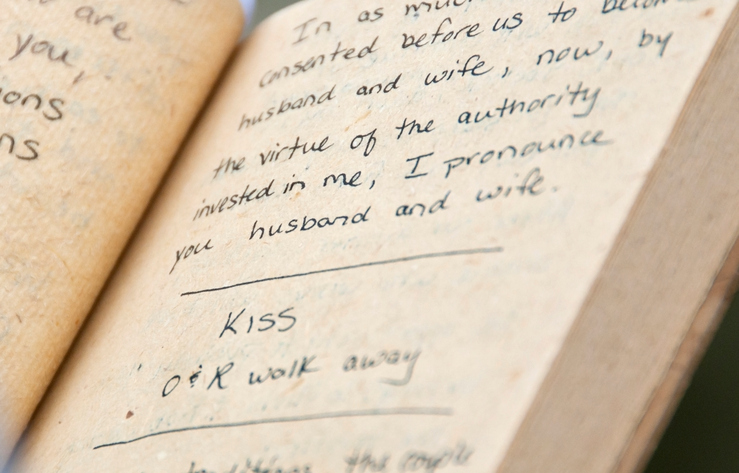 are
you,
ons
ns
In as
consented before us to
husband and wife, now, by
the virtue of the authority
invested in me, I pronounce
you husband and wife.
KISS
O & R walk away
the couple